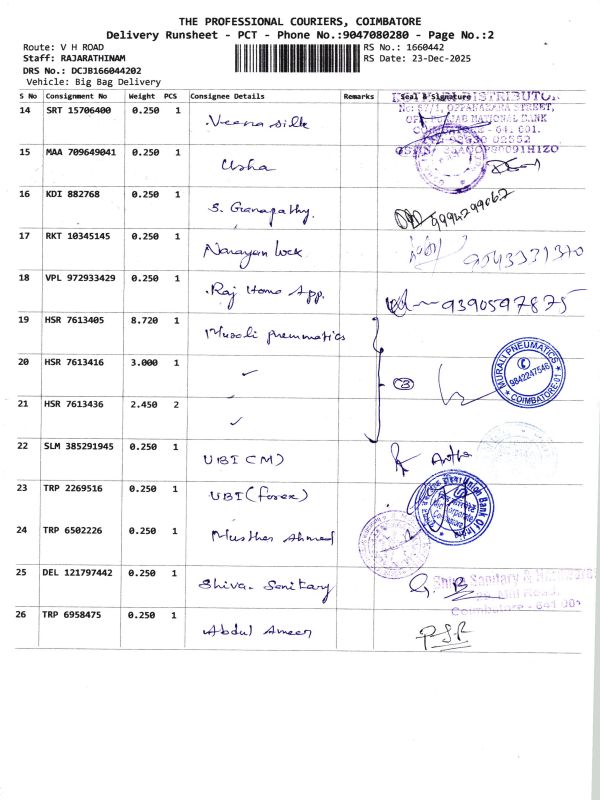 THE PROFESSIONAL COURIERS, COIMBATORE
Delivery Runsheet - PCT - Phone No.:9047080280 - Page No.:2
Route: V H ROAD
RS No.: 1660442
Staff: RAJARATHINAM
RS Date: 23-Dec-2025
DRS No.: DCJB166044202
Vehicle: Big Bag Delivery
S No Consignment No Weight PCS Consignee Details Remarks Seal & Signature
DISTRIBUTOR
OPPANAKARA STREET,
NATIONAL BANK
641 001.
14 SRT 15706400 0.250 1 Veena silk
15 MAA 709649041 0.250 1 Usha
16 KDI 882768 0.250 1 S. Ganapathy. 9994299062
17 RKT 10345145 0.250 1 Narayan lock 9543331370
18 VPL 972933429 0.250 1 Raj Home App. 9390597875
19 HSR 7613405 8.720 1 Murali pneumatics
20 HSR 7613416 3.000 1 ✓
3
MURALI PNEUMATICS
9842247546
COIMBATORE-01
21 HSR 7613436 2.450 2 ✓
22 SLM 385291945 0.250 1 UBI (M)
23 TRP 2269516 0.250 1 UBI (forex)
Union Bank Of India
24 TRP 6502226 0.250 1 Musthar Ahmed
25 DEL 121797442 0.250 1 Shiva Sanitary
Shiva Sanitary & Hardware
Coimbatore - 641 001
26 TRP 6958475 0.250 1 Abdul Ameer